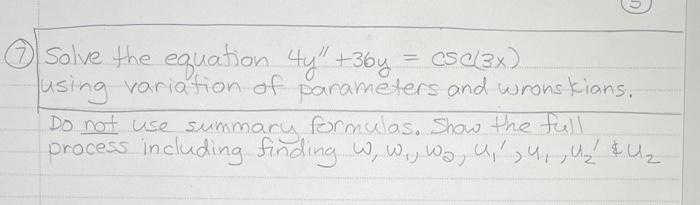 5
7 Solve the equation 4y" + 36y = csc(3x)
using variation of parameters and wronskians.
Do not use summary formulas. Show the full
process including finding w, w₁, w₂, u₁', u₁, u₂' & u₂